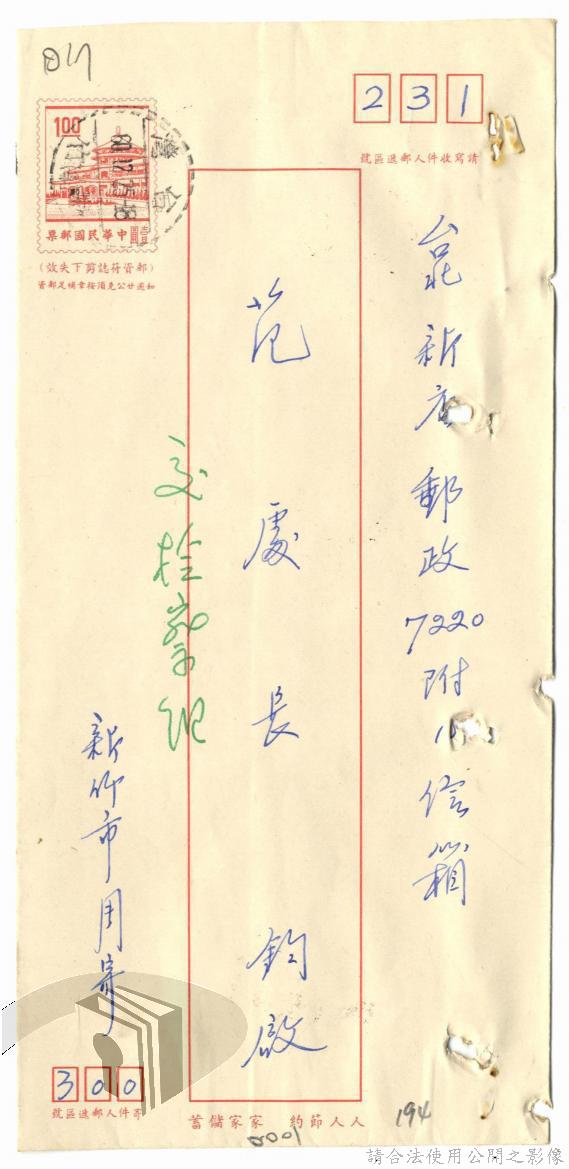 231
請寫收件人郵遞區號
台北新店郵政7220附11信箱
范處長 鈞啟
交检察组
新竹市周寄
300
寄件人郵遞區號
1.00
中華民國郵票
壹圓
(郵資符誌剪下失效)
如遇廿公克須按章補足郵資
人人節約 家家儲蓄
194
0001
請合法使用公開之影像